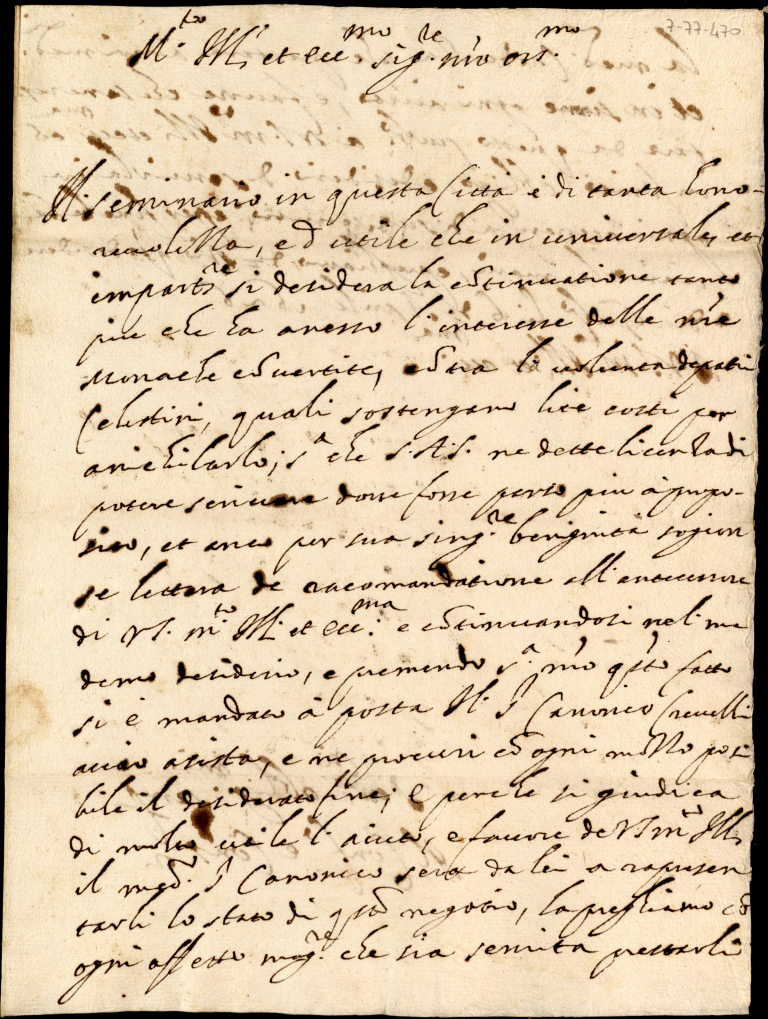 7-77-470
M.to Ill. et ecc.mo sig.re n'ro oss.mo
Il seminario in questa Città è di tanta hono-
revolissa, e d utile che in universale, et
in part.re si desidera la cōtinuatione tanto
piu che ha anesso l'interesse delle n're
Monache cōvertite, cōtra la volunta de patri
Celestini, quali sostengano lite costi per
anichilarlo; s.a che S.A.S. ne dette licenza di
potere scrivere dove fosse parso piu à propo-
sito, et anco per sua sing.re benignità sogion
se lettera de racomandatione all'antecessore
di VS. m.to Ill. et ecc.ma e cōtinuandosi nel me
demo desiderio, e premendo s.a n'ro q'sto fatto
si è mandato à posta Il S.r Canonico Crevelli
acciò asista, e ne procuri cō ogni modo posi
bile il desiderato fine; E perche si giudica
di molto utile l'aiuto, e favore de VS m.to Ill.
il med.o S.r Canonico sera da lei a rapresen
tarli lo stato di q'sto negotio, la preghiamo cō
ogni affetto mag.re che sia servita prestarli